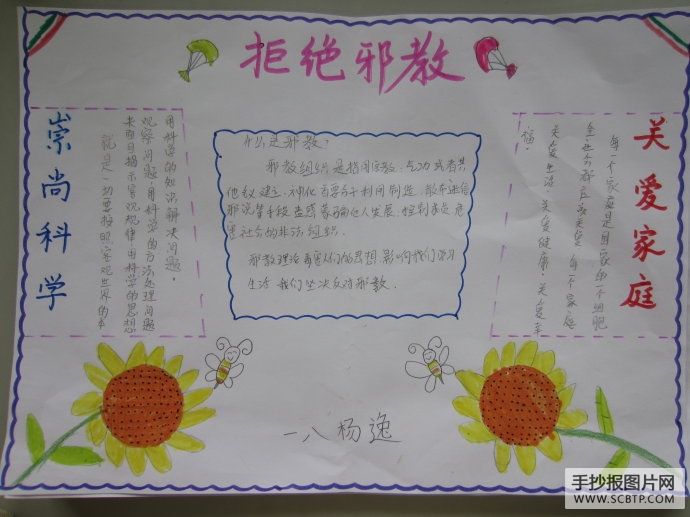 拒绝邪教
崇尚科学
就是一切要按照客观世界的本
来面目揭示客观规律,用科学的思想
观察问题,用科学的方法处理问题
用科学的知识解决问题。
什么是邪教:
邪教组织是指冒用宗教、气功或者其
他名义建立、神化首要分子利用制造、散布迷信
邪说等手段蛊惑蒙骗他人发展、控制成员危
害社会的非法组织.
邪教理论毒害人们的思想,影响我们学习
生活 我们坚决反对邪教.
关爱家庭
每一个家庭是国家的一个细胞
全社会都应该关爱每个家庭
关爱生活、关爱健康、关爱幸
福.
一八 杨逸
手抄报图片网
WWW.SCBTP.COM